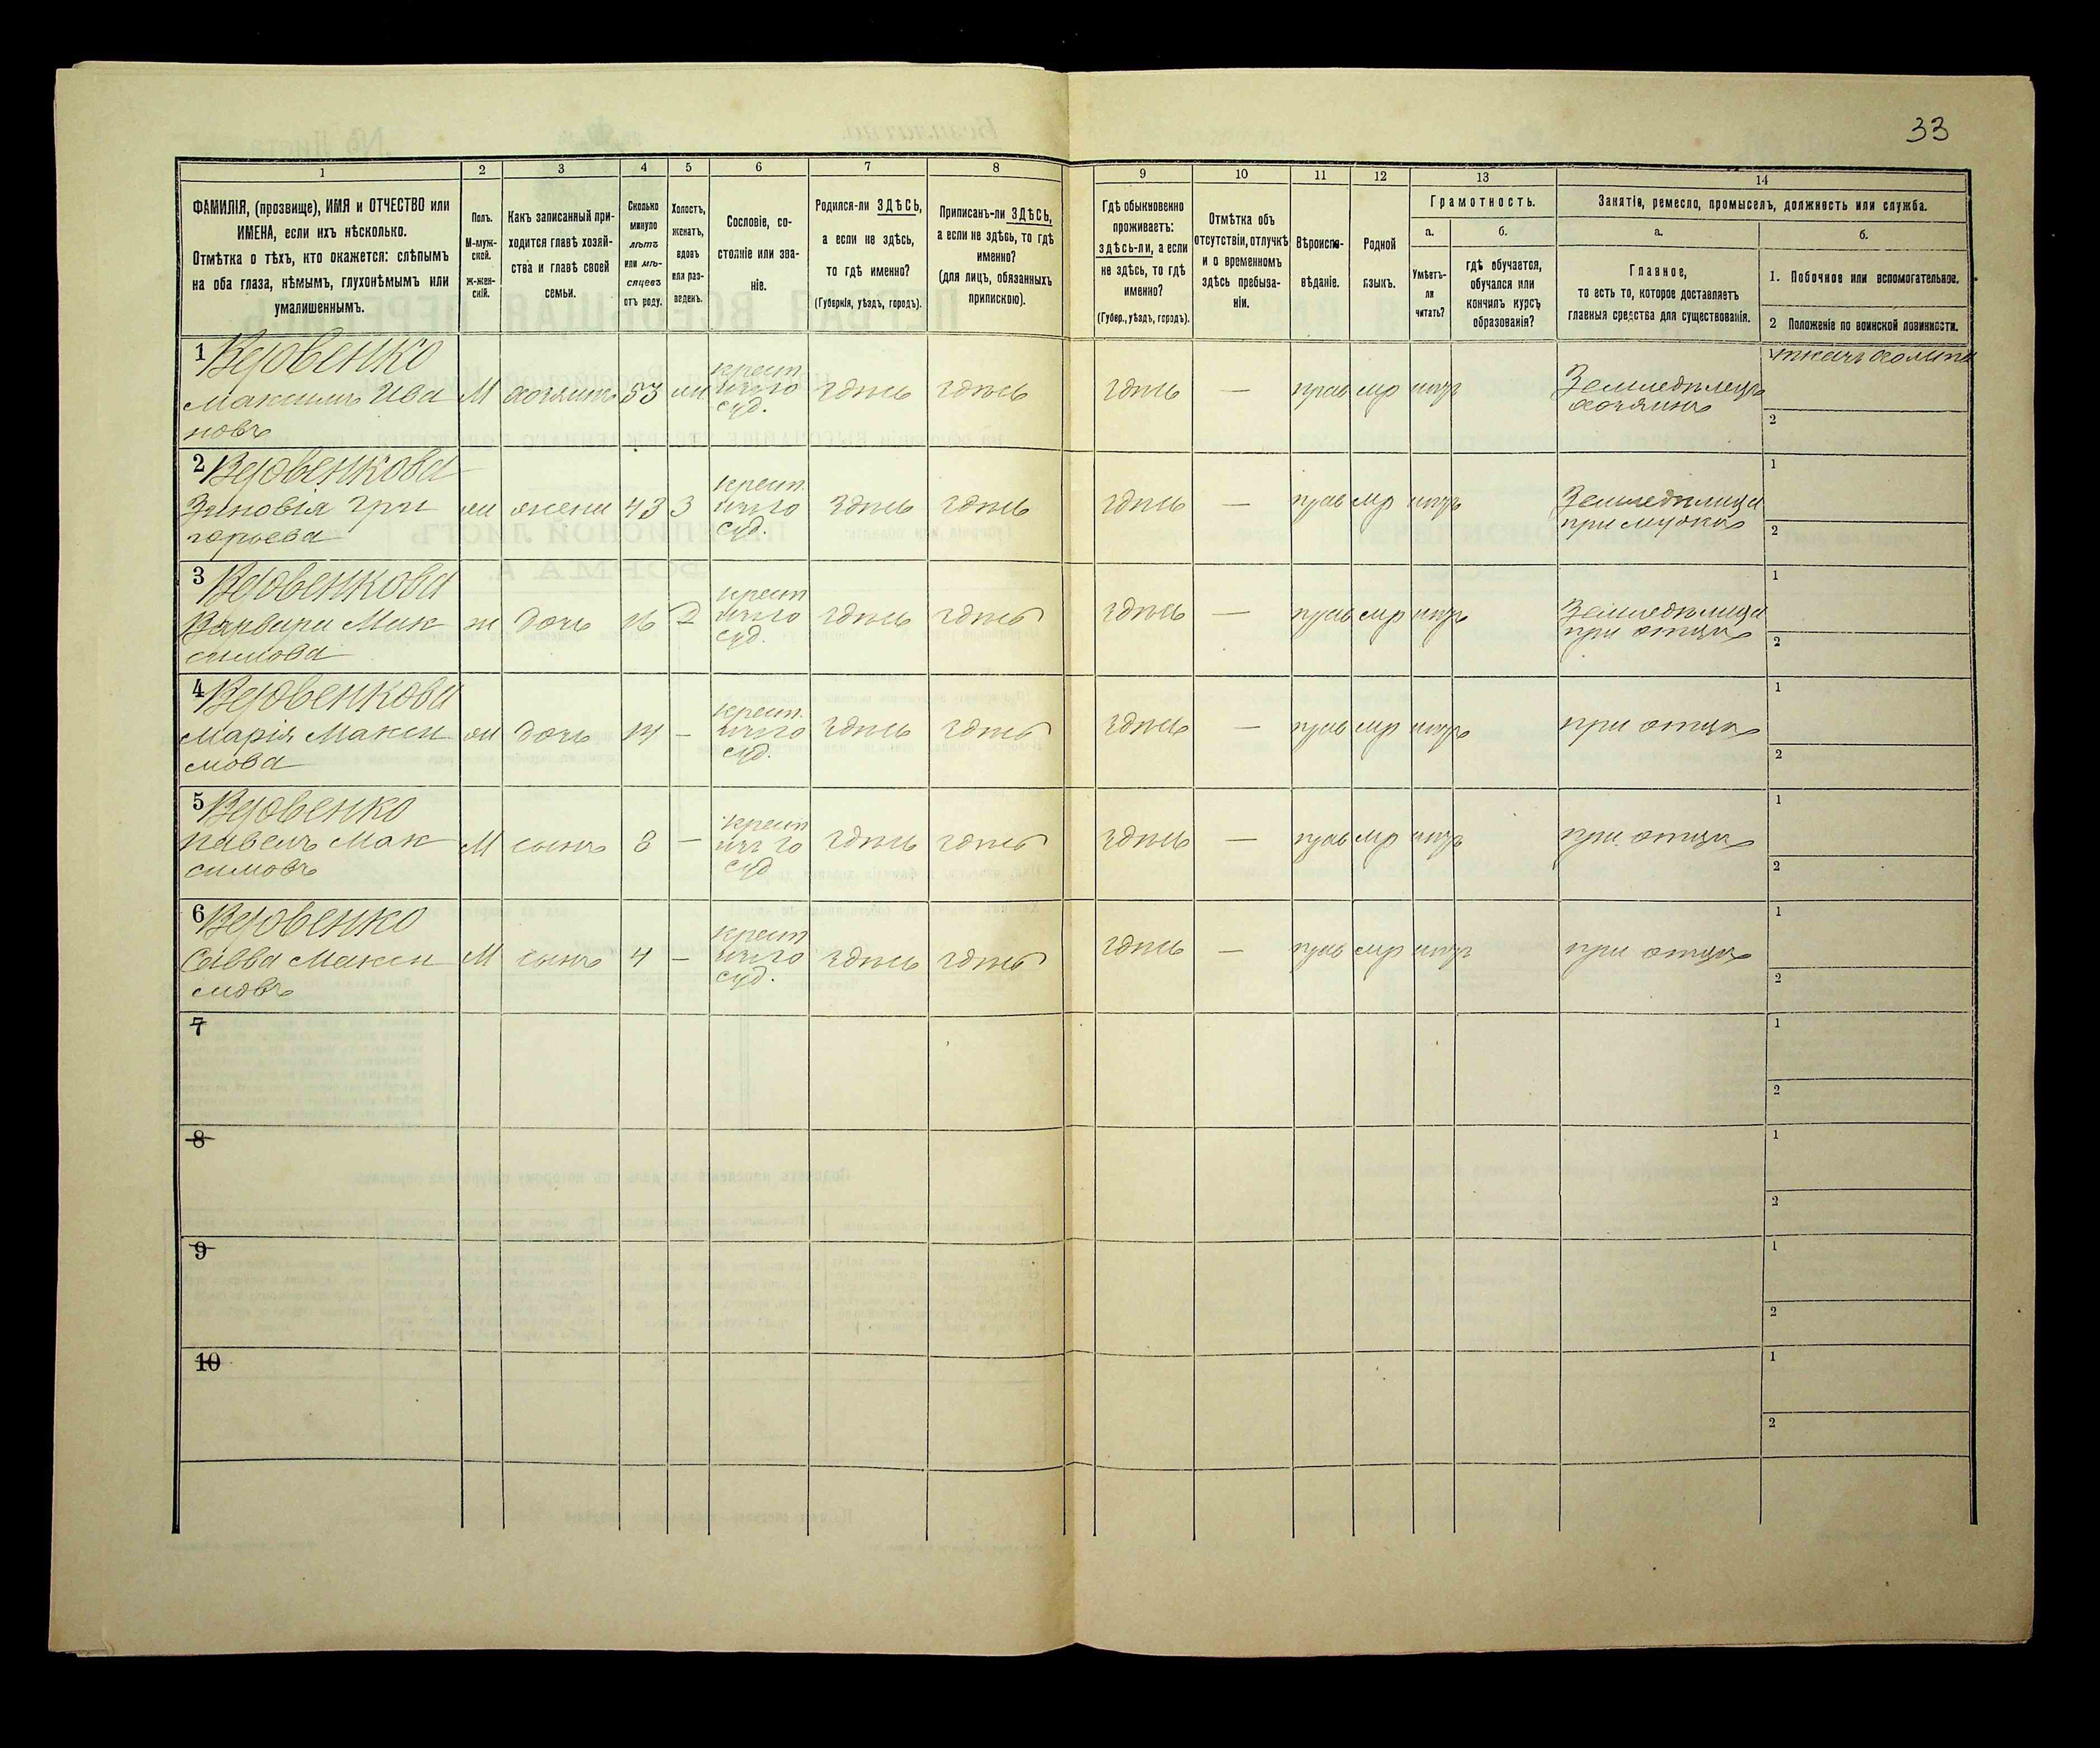 33
1
2
3
4
5
6
7
8
9
10
11
12
13
14
ФАМИЛІЯ, (прозвище), ИМЯ и ОТЧЕСТВО или
ИМЕНА, если ихъ нѣсколько.
Отмѣтка о тѣхъ, кто окажется: слѣпымъ
на оба глаза, нѣмымъ, глухонѣмымъ или
умалишеннымъ.
Полъ.
М-муж-
ской.
ж-жен-
скій.
Какъ записанный при-
ходится главѣ хозяй-
ства и главѣ своей
семьи.
Сколько
минуло
лѣтъ
или мѣ-
сяцевъ
отъ роду.
Холостъ,
женатъ,
вдовъ
или раз-
веденъ.
Сословіе, со-
стояніе или зва-
ніе.
Родился-ли ЗДѢСЬ,
а если не здѣсь,
то гдѣ именно?
(Губернія, уѣздъ, городъ).
Приписанъ-ли ЗДѢСЬ,
а если не здѣсь, то гдѣ
именно?
(для лицъ, обязанныхъ
припискою).
Гдѣ обыкновенно
проживаетъ:
здѣсь-ли, а если
не здѣсь, то гдѣ
именно?
(Губер., уѣздъ, городъ).
Отмѣтка объ
отсутствіи, отлучкѣ
и о временномъ
здѣсь пребыва-
ніи.
Вѣроиспо-
вѣданіе.
Родной
языкъ.
Грамотность.
а.
Умѣетъ-
ли
читать?
б.
гдѣ обучается,
обучался или
кончилъ курсъ
образованія?
Занятіе, ремесло, промыселъ, должность или служба.
а.
Главное,
то есть то, которое доставляетъ
главныя средства для существованія.
б.
1. Побочное или вспомогательное.
2 Положеніе по воинской повинности.
1 Вдовенко
Максимъ Ива
новъ
М
хозяинъ
53
крест.
суд.
здѣсь
здѣсь
здѣсь
—
прав
мр
нѣтъ
Земледѣлецъ
хозяинъ
2
2 Вдовенкова
Зиновія Гри
горьева
жена
43
З
крест.
суд.
здѣсь
здѣсь
здѣсь
—
прав
мр
нѣтъ
Земледѣлица
при мужѣ
1
2
3 Вдовенкова
Варвара Мак
симова
ж
дочь
16
крест
суд.
здѣсь
здѣсь
здѣсь
—
прав
мр
нѣтъ
Земледѣлица
при отцѣ
1
2
4 Вдовенкова
Марія Макси
мова
дочь
—
крест.
суд.
здѣсь
здѣсь
здѣсь
—
прав
мр
нѣтъ
при отцѣ
1
2
5 Вдовенко
Павелъ Мак
симовъ
М
сынъ
8
—
крест
суд
здѣсь
здѣсь
здѣсь
—
прав
мр
нѣтъ
при отцѣ
1
2
6 Вдовенко
Савва Макси
мовъ
М
сынъ
4
—
крест
суд.
здѣсь
здѣсь
здѣсь
—
прав
мр
нѣтъ
при отцѣ
1
2
7
1
2
8
1
2
9
1
2
10
1
2